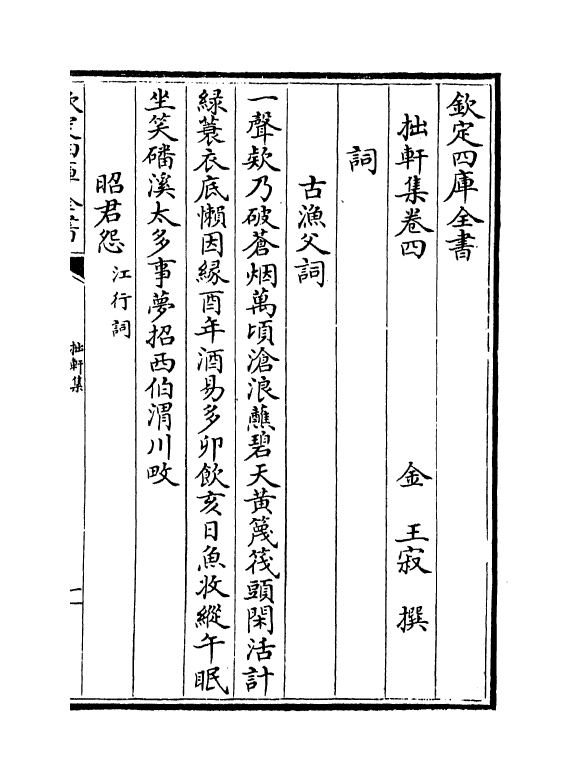 欽定四庫全書
拙軒集卷四
金 王寂 撰
詞
古漁父詞
一聲欸乃破蒼烟萬頃滄浪蘸碧天黃篾筏頭閑活計
緑蓑衣底懶因縁酉年酒易多卯飲亥日魚收縱午眠
坐笑磻溪太多事夢招西伯渭川畋
昭君怨江行詞
欽定四庫全書
拙軒集
一